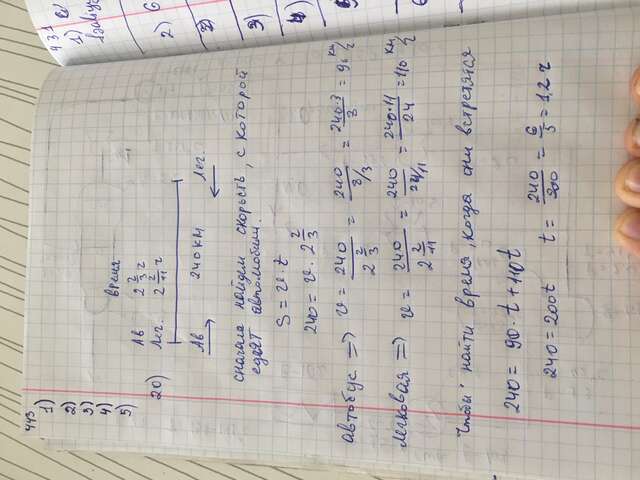 443
1)
2)
3)
4)
5)
20)
время
Ав 2 2/3 ч
Лег. 2 2/11 ч
Ав 240 км Лег.
сначала найдем скорость, с которой
едят автомобили.
S = v · t
240 = v · 2 2/3
автобус => v = 240 / 2 2/3 = 240 / 8/3 = 240·3 / 8 = 90 км/ч
легковая => v = 240 / 2 2/11 = 240 / 24/11 = 240·11 / 24 = 110 км/ч
Чтобы найти время, когда они встретятся
240 = 90 · t + 110t
240 = 200t t = 240/200 = 6/5 = 1,2 ч
431
1)
2) 6
3)
4)